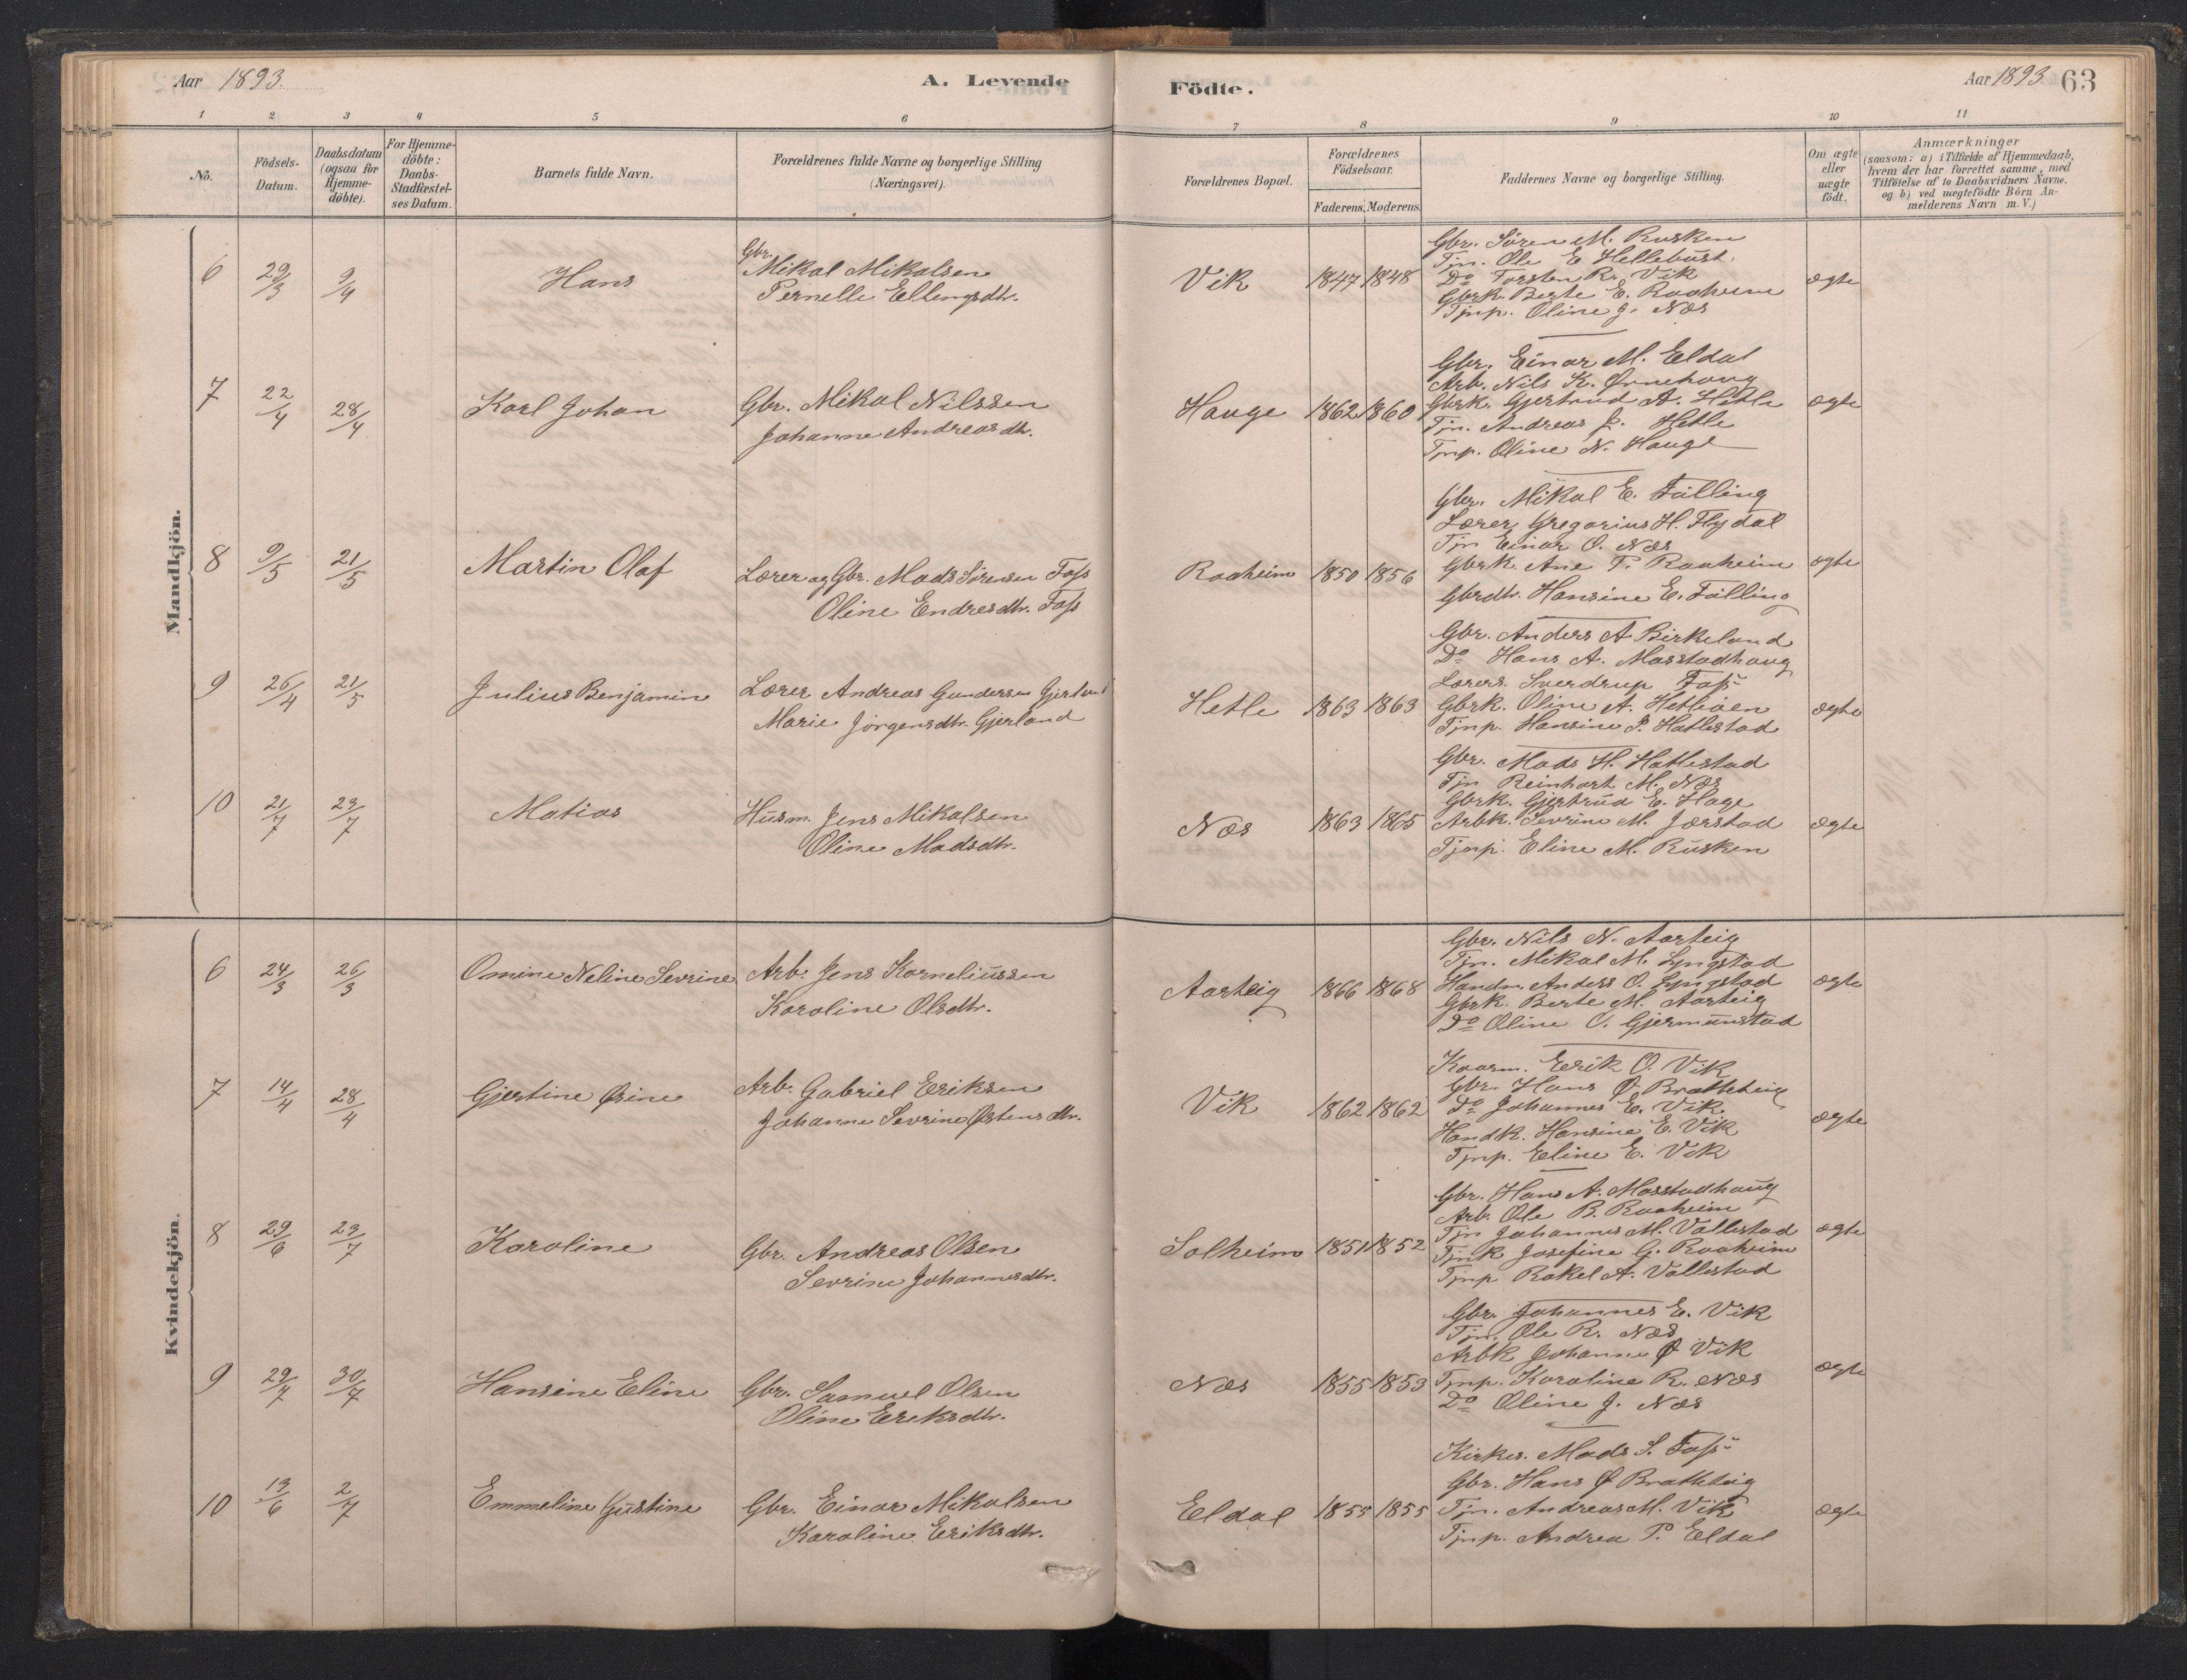 Aar 1893.
A. Levende
Födte.
Aar 1893. 63
1 2 3 4 5 6 7 8 9 10 11
No.
Födsels-
Datum.
Daabsdatum
(ogsaa for
Hjemme-
döbte).
For Hjemme-
döbte:
Daabs-
Stadfæstel-
ses Datum.
Barnets fulde Navn.
Forældrenes fulde Navne og borgerlige Stilling
(Næringsvei).
Forældrenes Bopæl.
Forældrenes
Födselsaar.
Faderens. Moderens.
Faddernes Navne og borgerlige Stilling.
Om ægte
eller
uægte
födt.
Anmærkninger
(saasom: a) i Tilfælde af Hjemmedaab,
hvem der har forrettet samme, med
Tilföielse af to Daabsvidners Navne,
og b) ved uægtefödte Börn An-
melderens Navn m. V.)
Mandkjön.
6 29/3 9/4 Hans
Gbr. Mikal Mikalsen
Pernelle Ellengsdtr.
Vik 1847 1848
Gbr. Søren M. Rusken
Tjn. Ole E. Hellebust.
Do Torsten R. Vik
Gbrk. Berte E. Raaheim
Tjnp. Oline J. Næs
ægte
7 22/4 28/4 Karl Johan
Gbr. Mikal Nilssen
Johanne Andreasdtr.
Hauge 1862 1860
Gbr. Einar M. Eldal
Arb. Nils K. Ørnehaug
Gbrk. Gjertrud A. Hetle
Tjn. Andreas J. Hetle
Tjnp. Oline N. Hauge
ægte
8 9/5 21/5 Martin Olaf
Lærer og Gbr. Mads Sørensen Foss
Oline Endresdtr. Foss
Raaheim 1850 1856
Gbr. Mikal E. Fälling
Lærer Gregorius H. Flydal
Tjn Einar O. Næs
Gbrk. Ane T. Raaheim
Gbrdtr. Hansine E. Fälling
ægte
9 26/4 21/5 Julius Benjamin
Lærer Andreas Gundersen Gjerland
Marie Jörgensdtr. Gjerland
Hetle 1863 1863
Gbr. Anders A Birkeland
Do Hans A. Masstadhaug
Lærers. Sverdrup Foss
Gbrk. Oline A. Hetleien
Tjnp. Hansine P. Hatlestad
ægte
10 21/7 23/7 Matias
Husm. Jens Mikalsen
Oline Madsdtr.
Næs 1863 1865
Gbr. Mads H. Hatlestad
Tjn Reinhart M. Næs
Gbrk. Gjertrud E. Hage
Arbk. Sevrine M. Jarstad
Tjnp. Eline M. Rusken
ægte
Kvindekjön.
6 24/3 26/3 Omine Neline Sevrine
Arb. Jens Korneliussen
Karoline Olsdtr.
Aarteig 1866 1868
Gbr. Nils N. Aarteig
Tjn. Mikal M. Lyngstad
Handm. Anders O. Lyngstad
Gbrk. Berte M. Aarteig
Do Oline O. Gjermunstad
ægte
7 14/4 28/4 Gjertine Øsine
Arb. Gabriel Eriksen
Johanne Sevrine Østensdtr.
Vik 1862 1862
Kaarm. Erik O. Vik
Gbr. Hans Ø. Bratteteig
Do Johannes E. Vik
Handk. Hansine E. Vik
Tjnp. Eline E. Vik
ægte
8 29/6 23/7 Karoline
Gbr. Andreas Olsen
Sevrine Johannesdtr.
Solheim 1851 1852
Gbr. Hans A. Masstadhaug
Arb. Ole B. Raaheim
Tjn Johannes M. Vallestad
Tjnk Josefine G. Raaheim
Tjnp Rakel A. Vallestad
ægte
9 29/7 30/7 Hansine Eline
Gbr. Samuel Olsen
Oline Eriksdtr.
Næs 1855 1853
Gbr. Johannes E. Vik
Tjn. Ole R. Næs
Arbk Johanne Ø Vik
Tjnp. Karoline R. Næs
Do Oline J. Næs
ægte
10 13/6 2/7 Emmeline Gustine
Gbr. Einar Mikalsen
Karoline Eriksdtr.
Eldal 1855 1855
Kirkes. Mads S. Foss
Gbr. Hans Ø Bratteteig
Tjn. Andreas M. Vik
Tjnp. Andrea P. Eldal
ægte